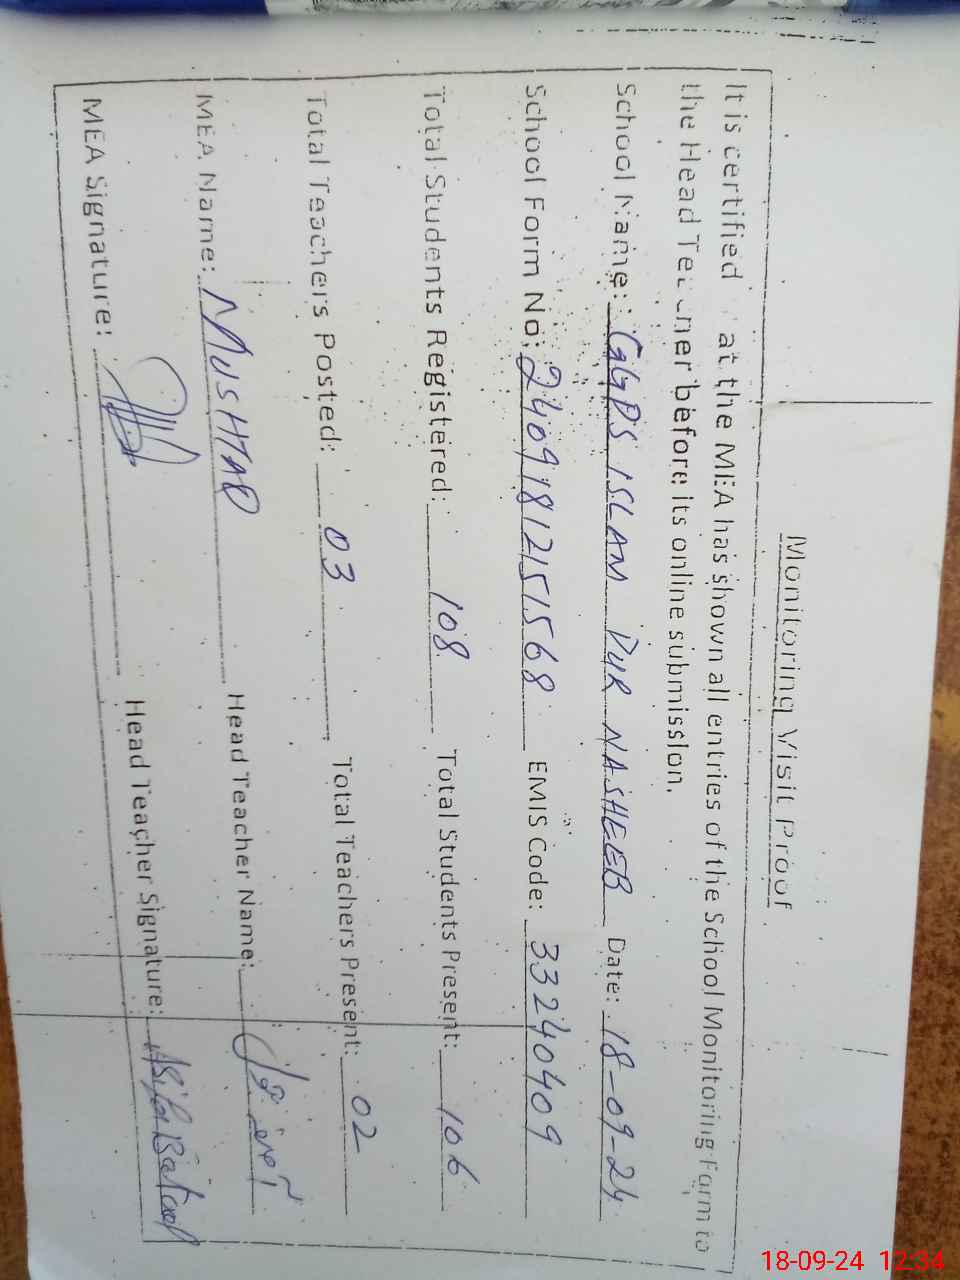 Monitoring Visit Proof
It is certified at the MEA has shown all entries of the School Monitoring Form to
the Head Teacher before its online submission.
School Name: GGPS ISLAM PUR NASHEEB Date: 18-09-24
School Form No: 24091812151568 EMIS Code: 33240409
Total Students Registered: 108 Total Students Present: 106
Total Teachers Posted: 03 Total Teachers Present: 02
MEA Name: MUSHTAQ Head Teacher Name:
MEA Signature: Head Teacher Signature: Asifa Batool
18-09-24 12:34